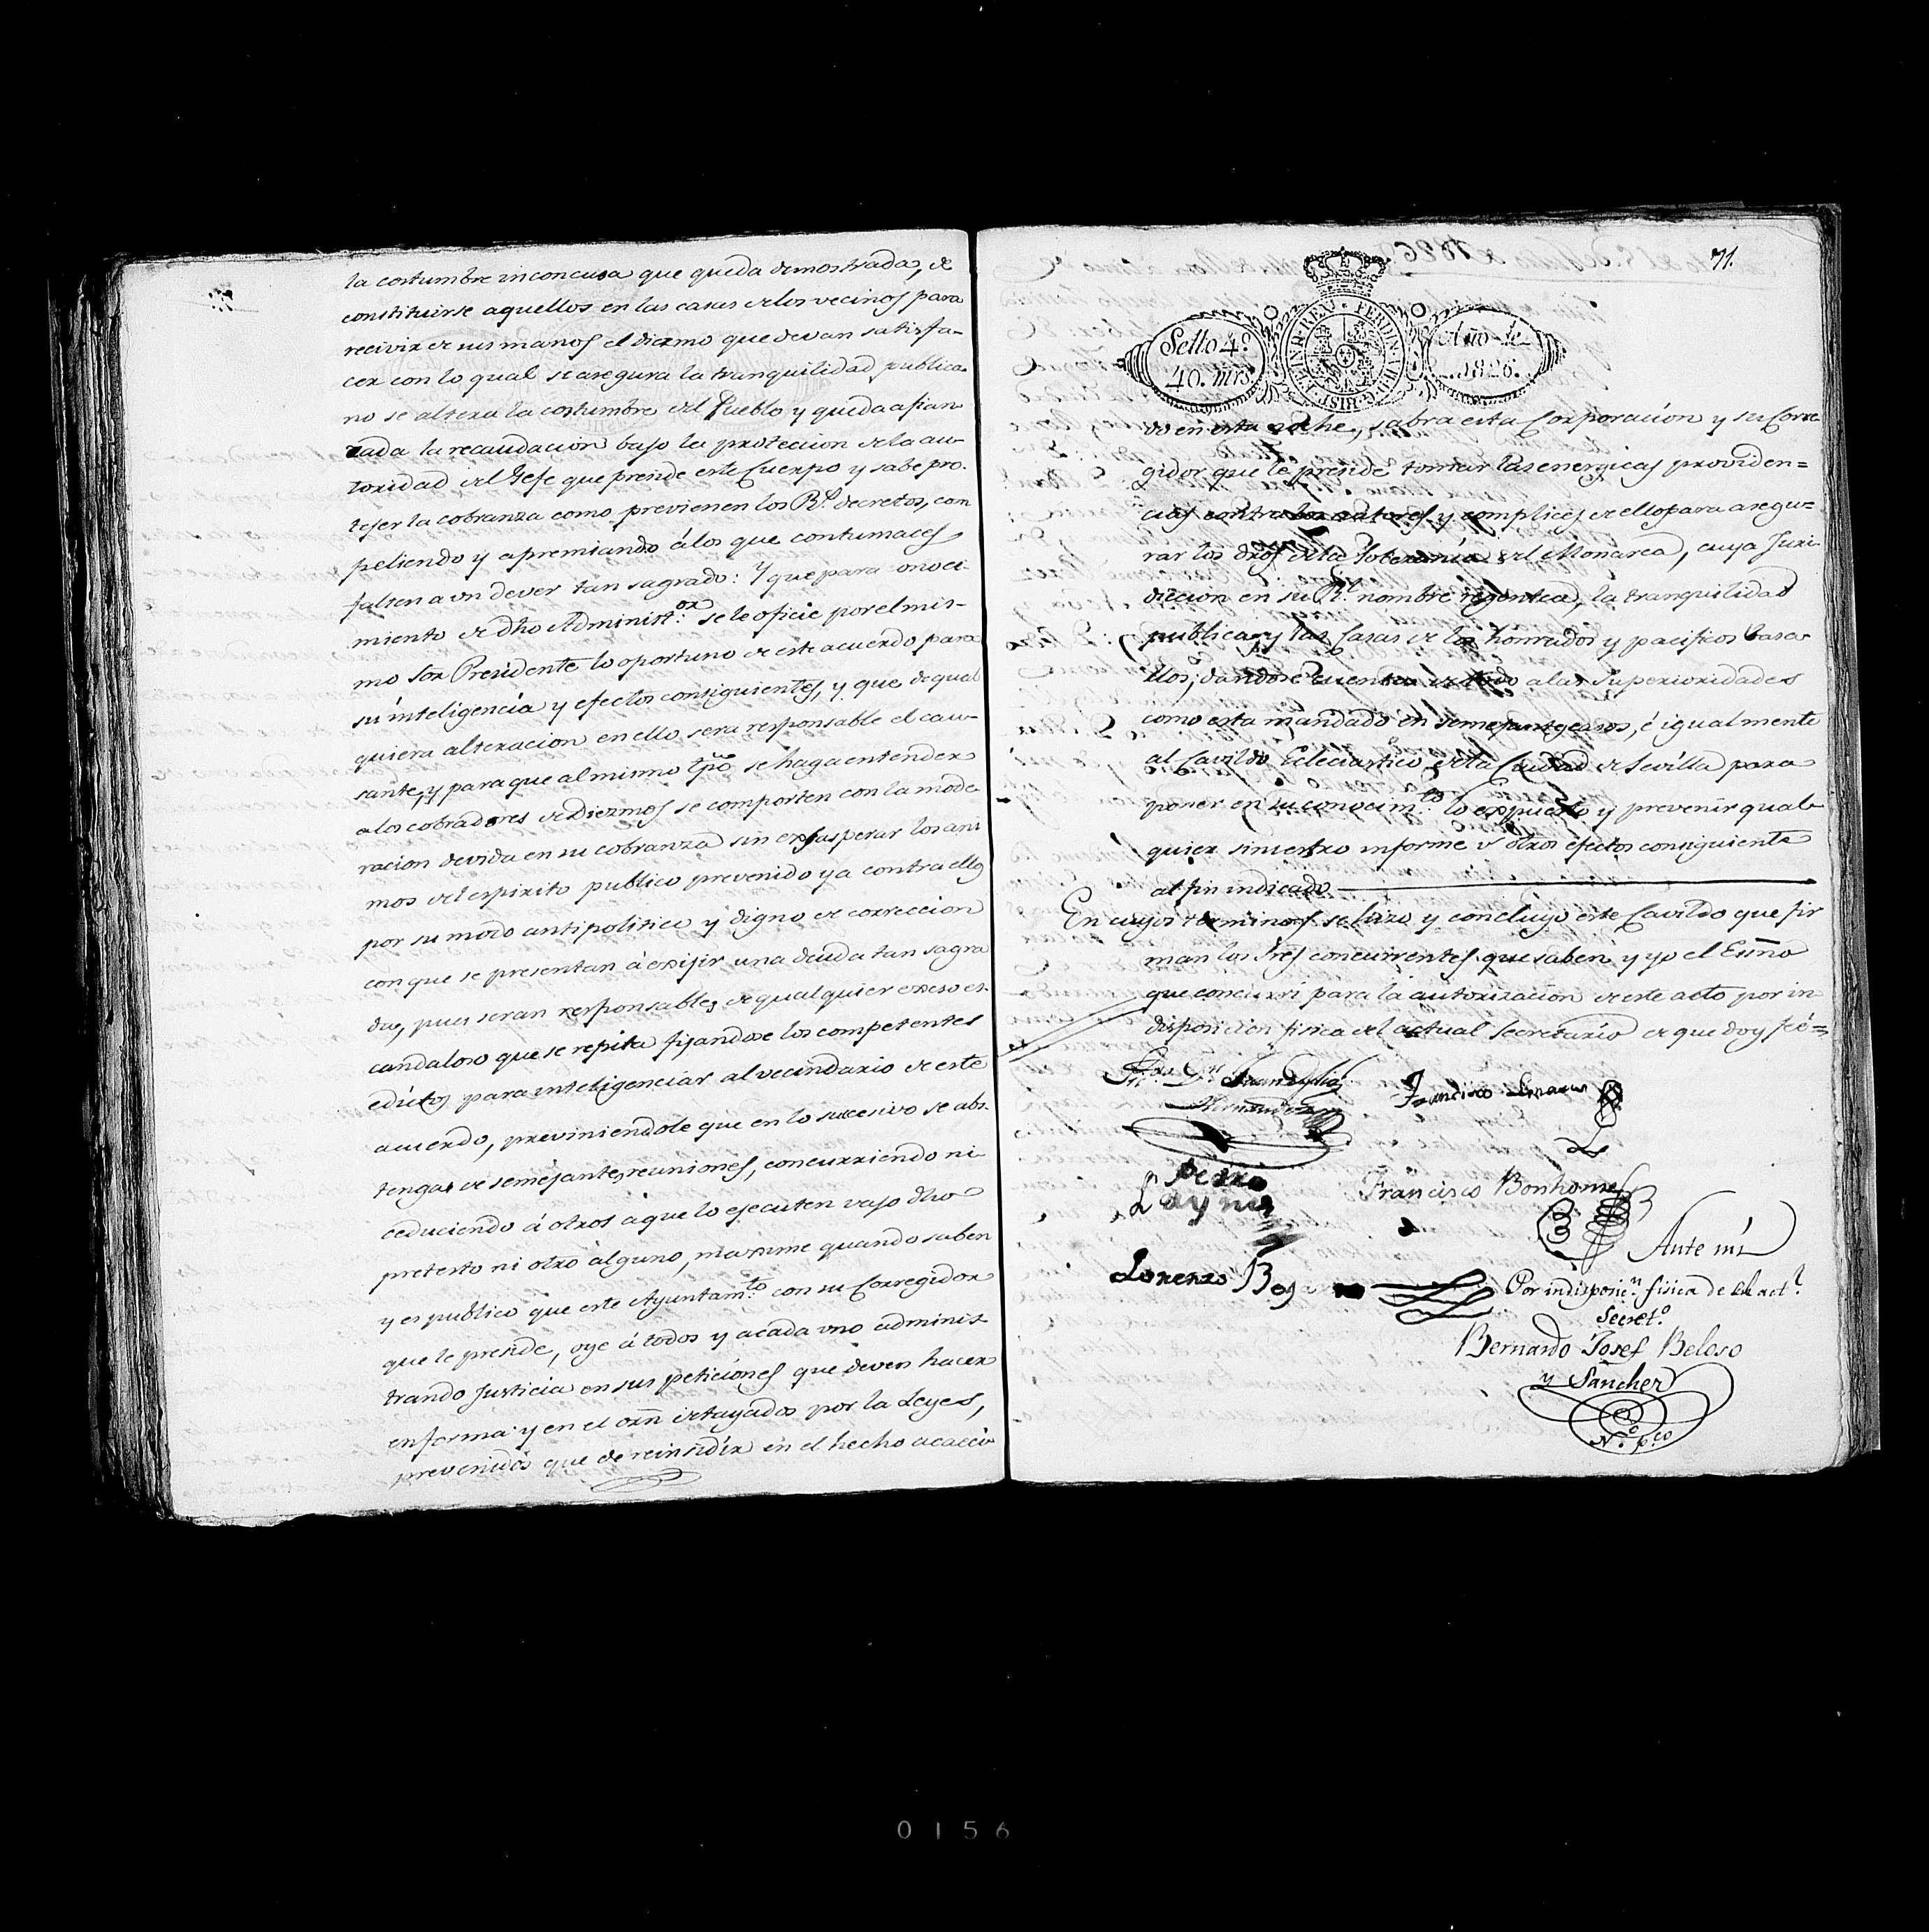 la costumbre inconcusa que queda demostrada, de
constituirse aquellos en las casas de los vecinos para
recivir de sus manos el diezmo que devan satisfa-
cer con lo qual se asegura la tranquilidad publica
no se altera la costumbre del Pueblo y queda afian
zada la recaudacion bajo la proteccion de la au-
toridad del Gefe que preside este Cuerpo y sabe pro-
tejer la cobranza como previenen los R.s decretos, com
peliendo y apremiando á los que contumaces
falten a un dever tan sagrado: Y que para conoci-
miento de dho Administ.or se le oficie por el mis-
mo Sor Presidente lo oportuno de este acuerdo para
su inteligencia y efectos consiguientes, y que de qual
quiera alteracion en ello sera responsable el cau-
sante, y para que al mismo tpõ se haga entender
a los cobradores de Diezmos se comporten con la mode
racion devida en su cobranza sin exasperar los ani
mos del espirito publico prevenido ya contra ellos
por su modo antipolitico y digno de correccion
con que se presentan á exijir una deuda tan sagra
da, pues seran responsables de qualquier exceso es-
candaloso que se repita fijandose los competentes
edictos para inteligenciar al vecindario de este
acuerdo, previniendole que en lo succesivo se abs-
tenga de semejantes reuniones, concurriendo ni
ceduciendo á otros a que lo ejecuten vajo dho
pretesto ni otro alguno, maxime quando saben
y es publico que este Ayuntam.to con su Corregidor
que le preside, oye á todos y a cada uno adminis-
trando Justicia en sus peticiones que deven hacer
en forma y en el orñ detayados por la Leyes,
prevenidos que de reinsidir en el hecho acaeci
71.
Sello 4º
40. mrs.
HISP. ET IND. REX FERDIN. VII. D. G.
Año de
1826.
do en esta noche, sabra esta Corporacion y su Corre
gidor que le preside tomar las energicas providen=
cias contra los autores y complices de ello para asegu=
rar los dros de la Soberanía del Monarca, cuya Juri
diccion en su R.l nombre regenta, la tranquilidad
publica, y las Casas de los honrados y pacificos Vasa-
llos, dandose cuenta de todo a las Superioridades
como esta mandado en semejantes casos, é igualmente
al Cavildo Ecleciastico de la Ciudad de Sevilla para
poner en su conocim.to lo expuesto y prevenir qual-
quier siniestro informe ú otros efectos consiguiente
al fin indicado
En cuyos terminos se hizo y concluyo este Cavildo que fir
man los Sres concurrentes que saben y yo el Essno
que concurri para la autorizacion de este acto por in
disposicion fisica del actual Secretario de que doy fé=
Francisco
Pedro
Laynez
Francisco Bonhome
Lorenzo
Ante mi
Por indisposic.n fisica de el act.l
Secret.o
Bernardo Josef Beloso
y Sanchez
N.o p.co
0156